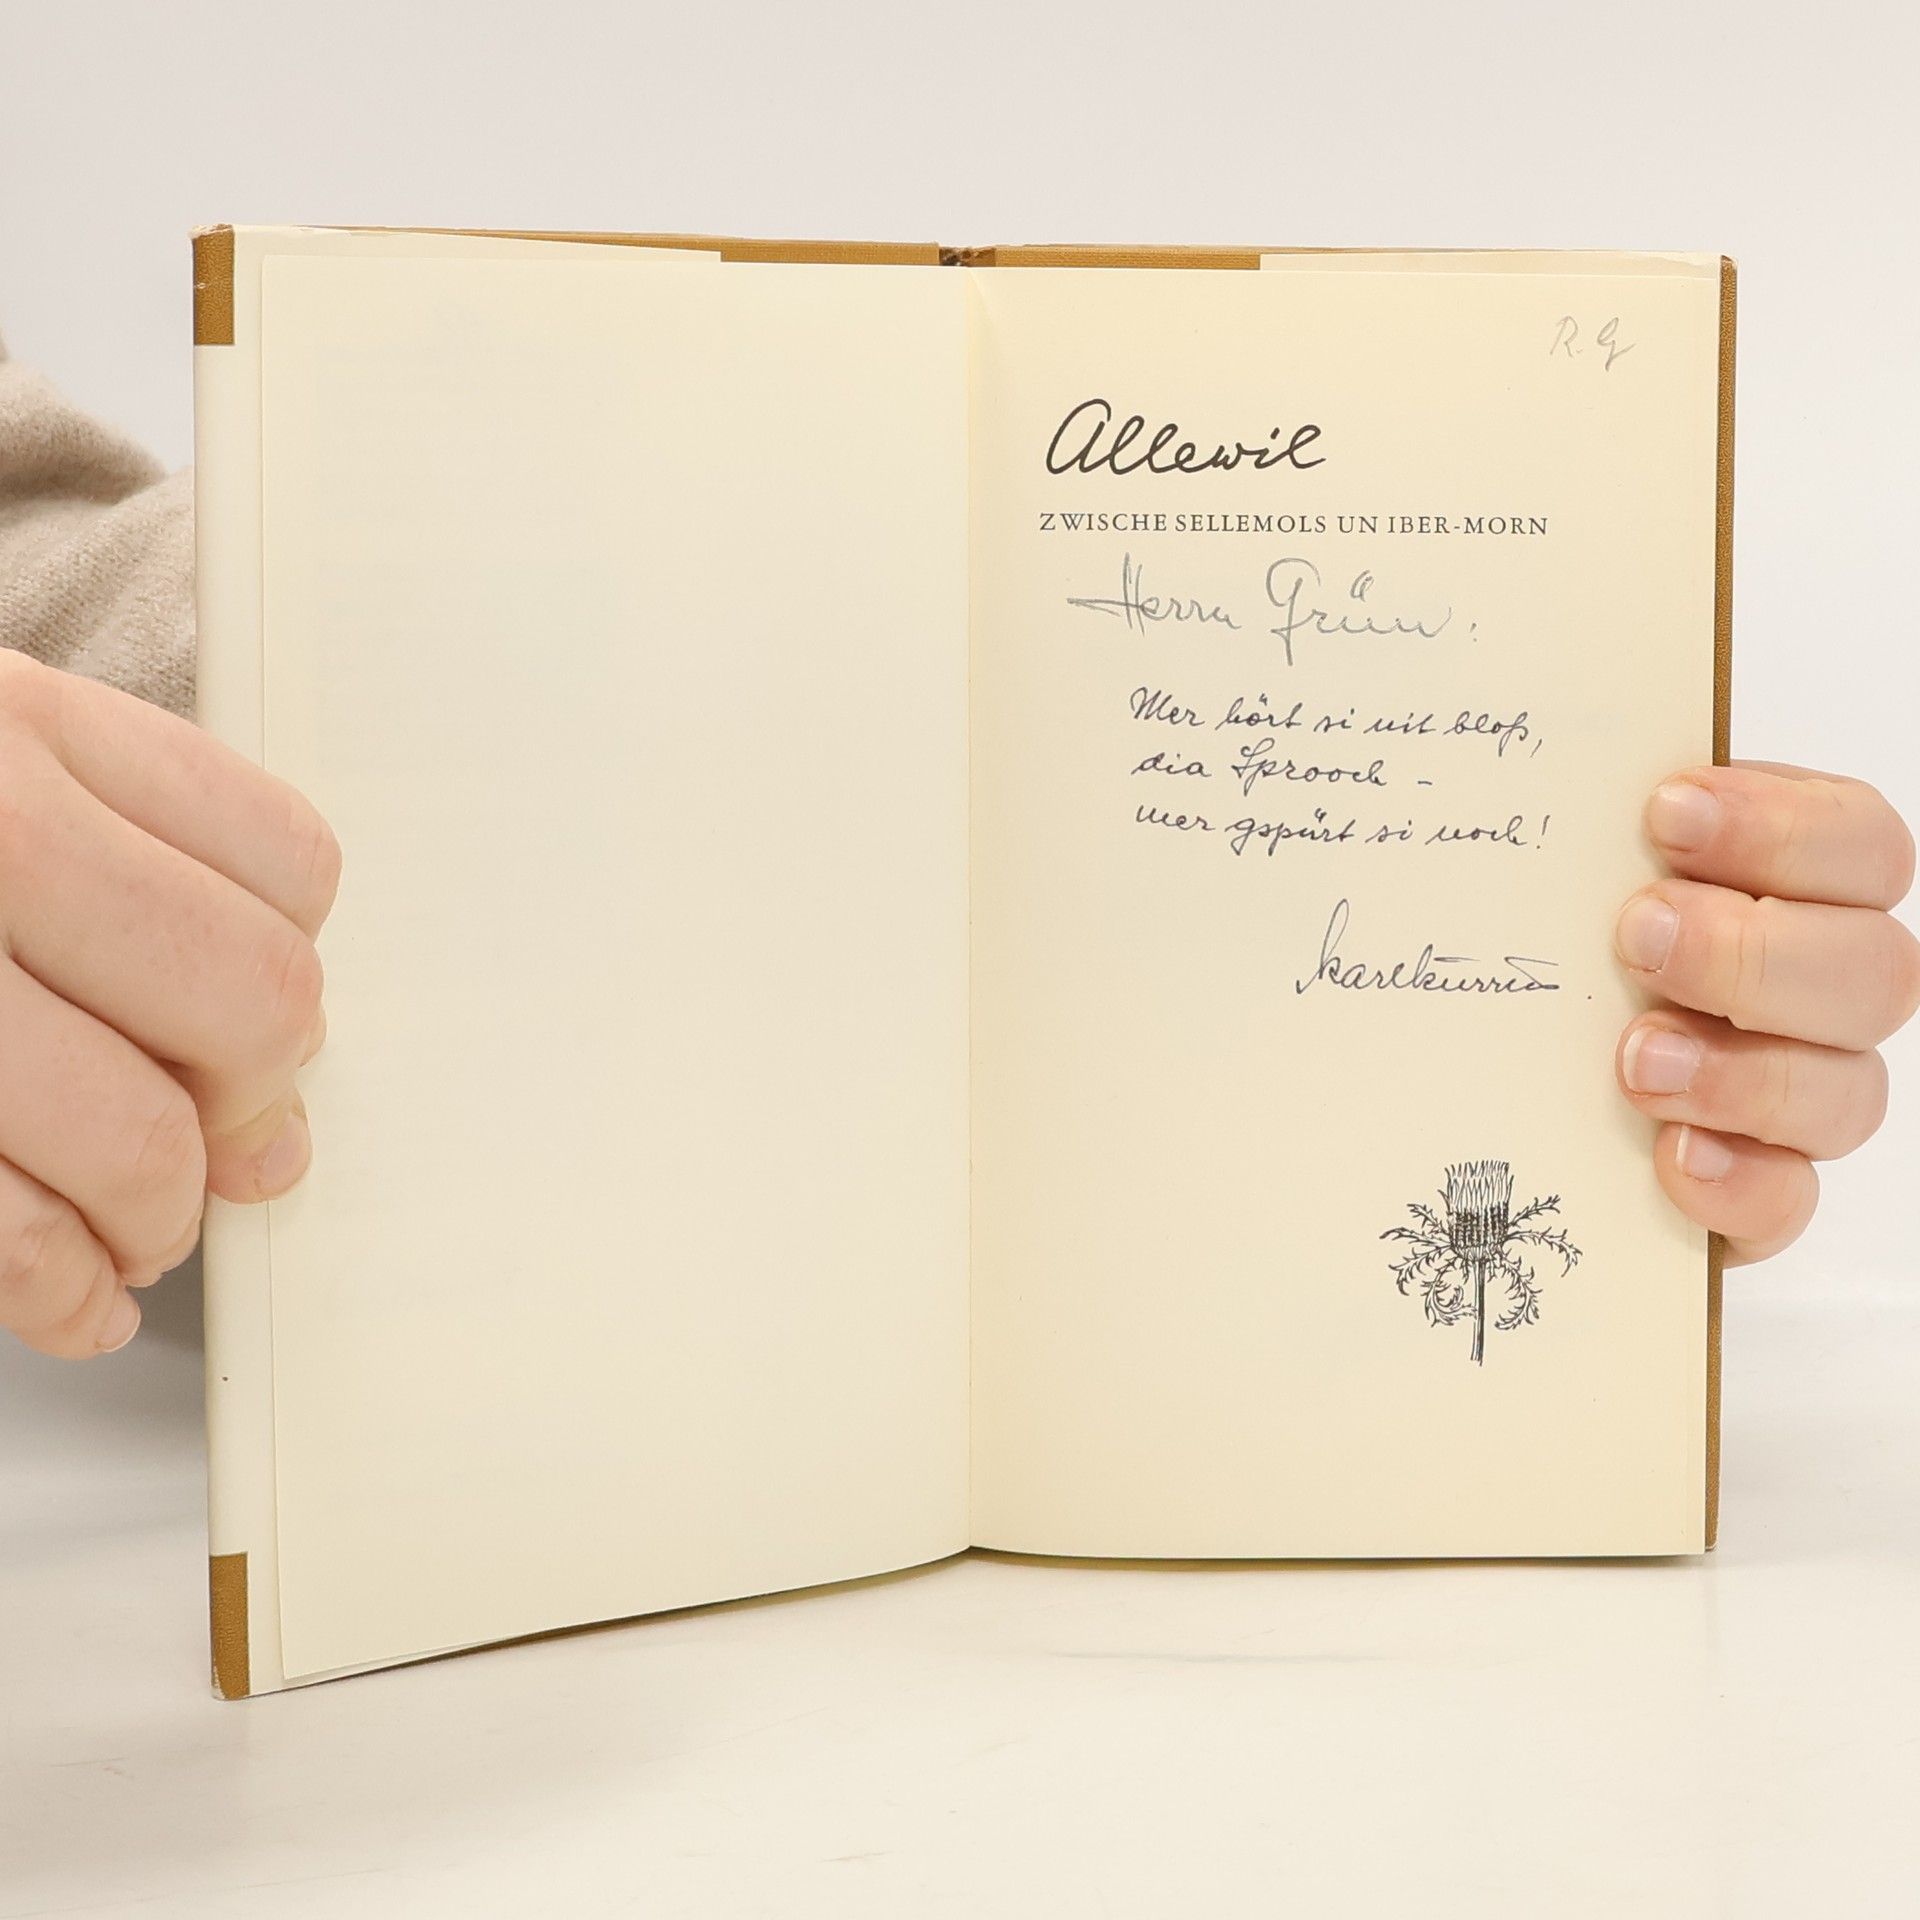 R. G
Allewil
ZWISCHE SELLEMOLS UN IBER-MORN
Herrn Grün:
Mer hört si nit bloß,
dia Sprooch –
mer gspürt si noch!
karlkurrus.